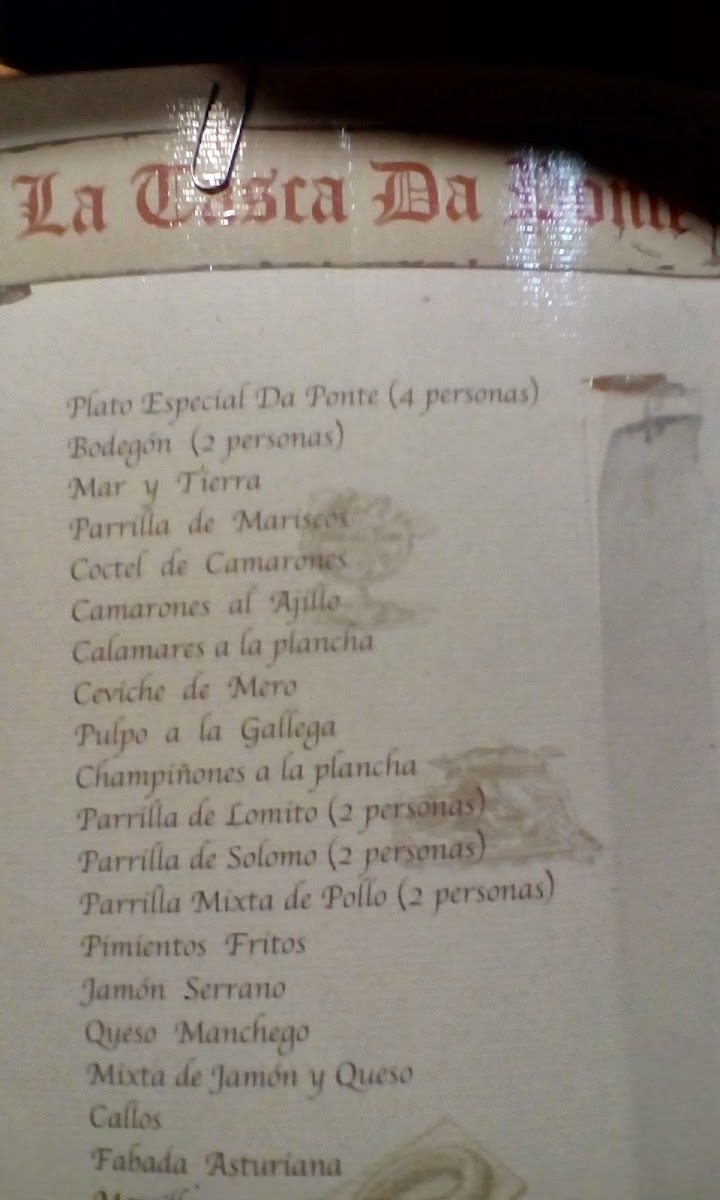 La Tasca Da Ponte
Plato Especial Da Ponte (4 personas)
Bodegón (2 personas)
Mar y Tierra
Parrilla de Mariscos
Coctel de Camarones
Camarones al Ajillo
Calamares a la plancha
Ceviche de Mero
Pulpo a la Gallega
Champiñones a la plancha
Parrilla de Lomito (2 personas)
Parrilla de Solomo (2 personas)
Parrilla Mixta de Pollo (2 personas)
Pimientos Fritos
Jamón Serrano
Queso Manchego
Mixta de Jamón y Queso
Callos
Fabada Asturiana